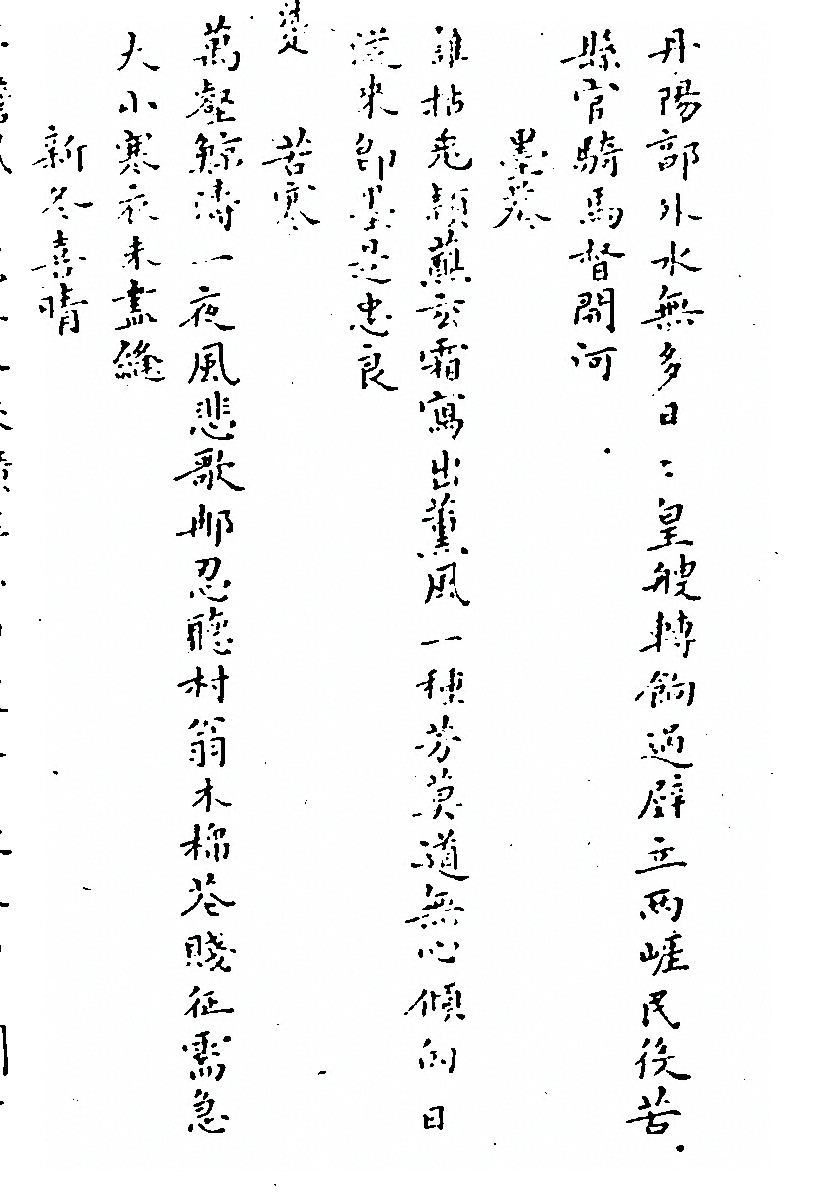 丹陽部外水無多日〻皇艘轉餉過壁立兩崕民役苦
縣官騎馬督開河
墨葵
誰拈兎穎蘸玄霜寫出薰風一種芳莫道無心傾向日
從來即墨是忠良
苦寒
萬壑鯨濤一夜風悲歌那忍聽村翁木棉花賤征需急
大小寒衣未盡縫
新冬喜晴